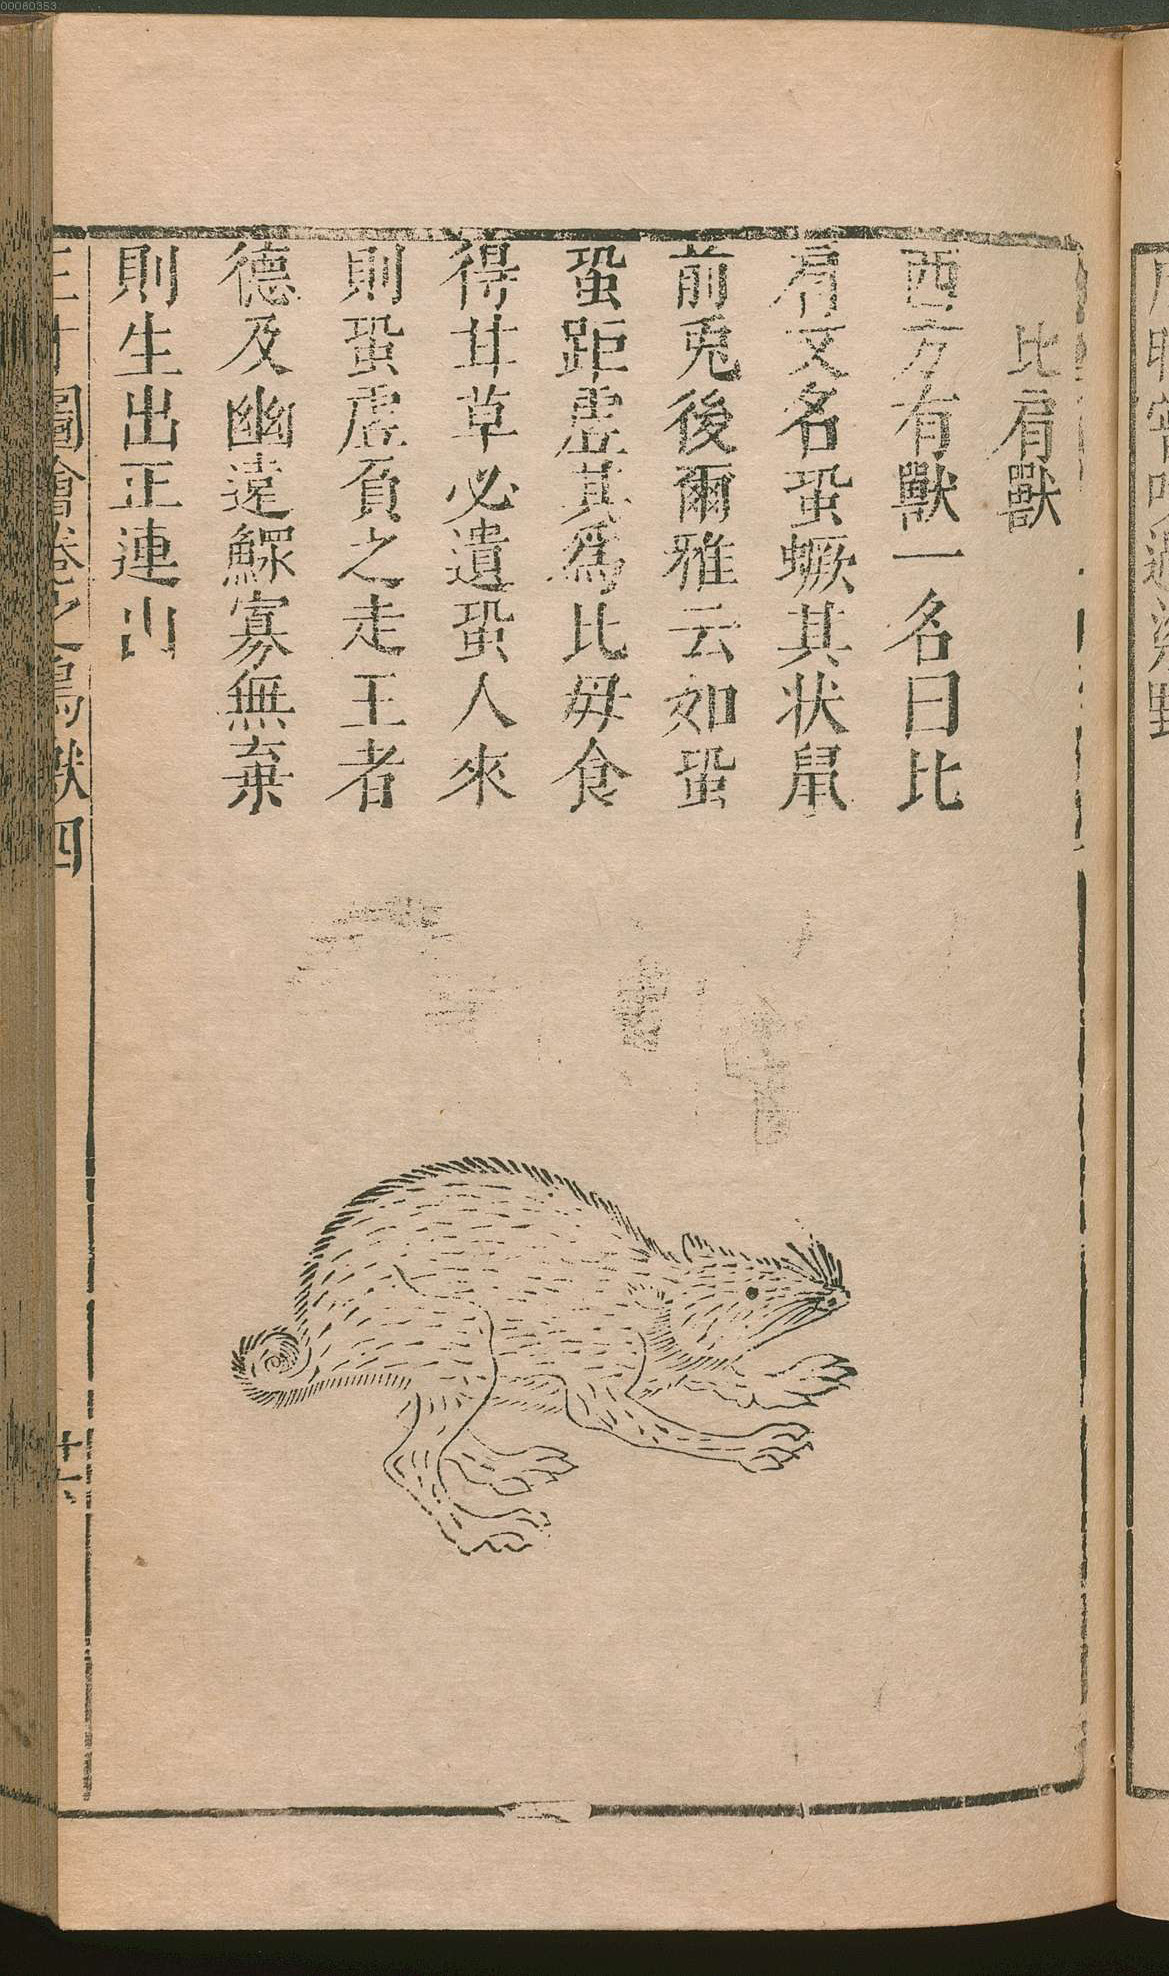 比肩獸
西方有獸一名曰比
肩又名蛩蟨其状鼠
前兎後爾雅云如蛩
蛩距虛其爲比毋食
得甘草必遺蛩人來
則蛩虛負之走王者
德及幽遠鰥寡無棄
則生出正連山
圖會卷之鳥獸四
十六
00060353